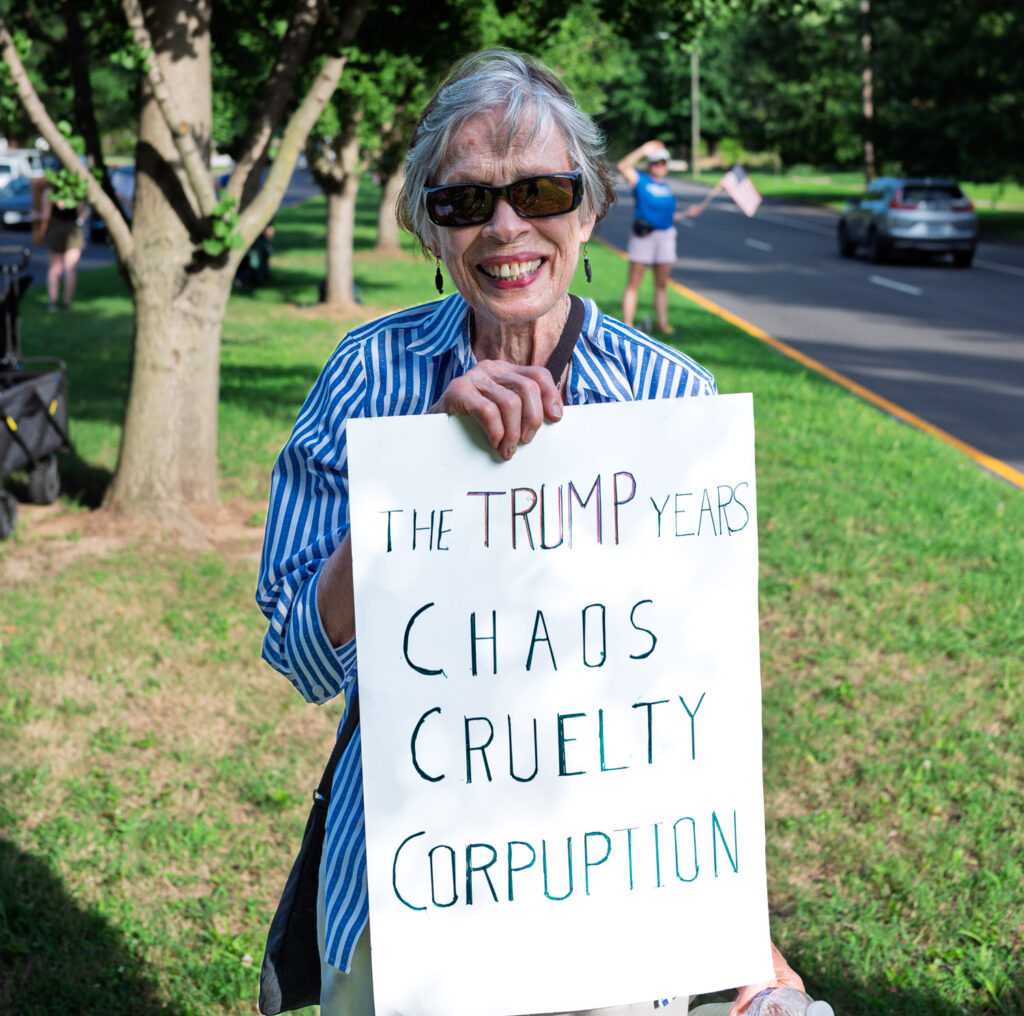 THE TRUMP YEARS
CHAOS
CRUELTY
CORPUPTION